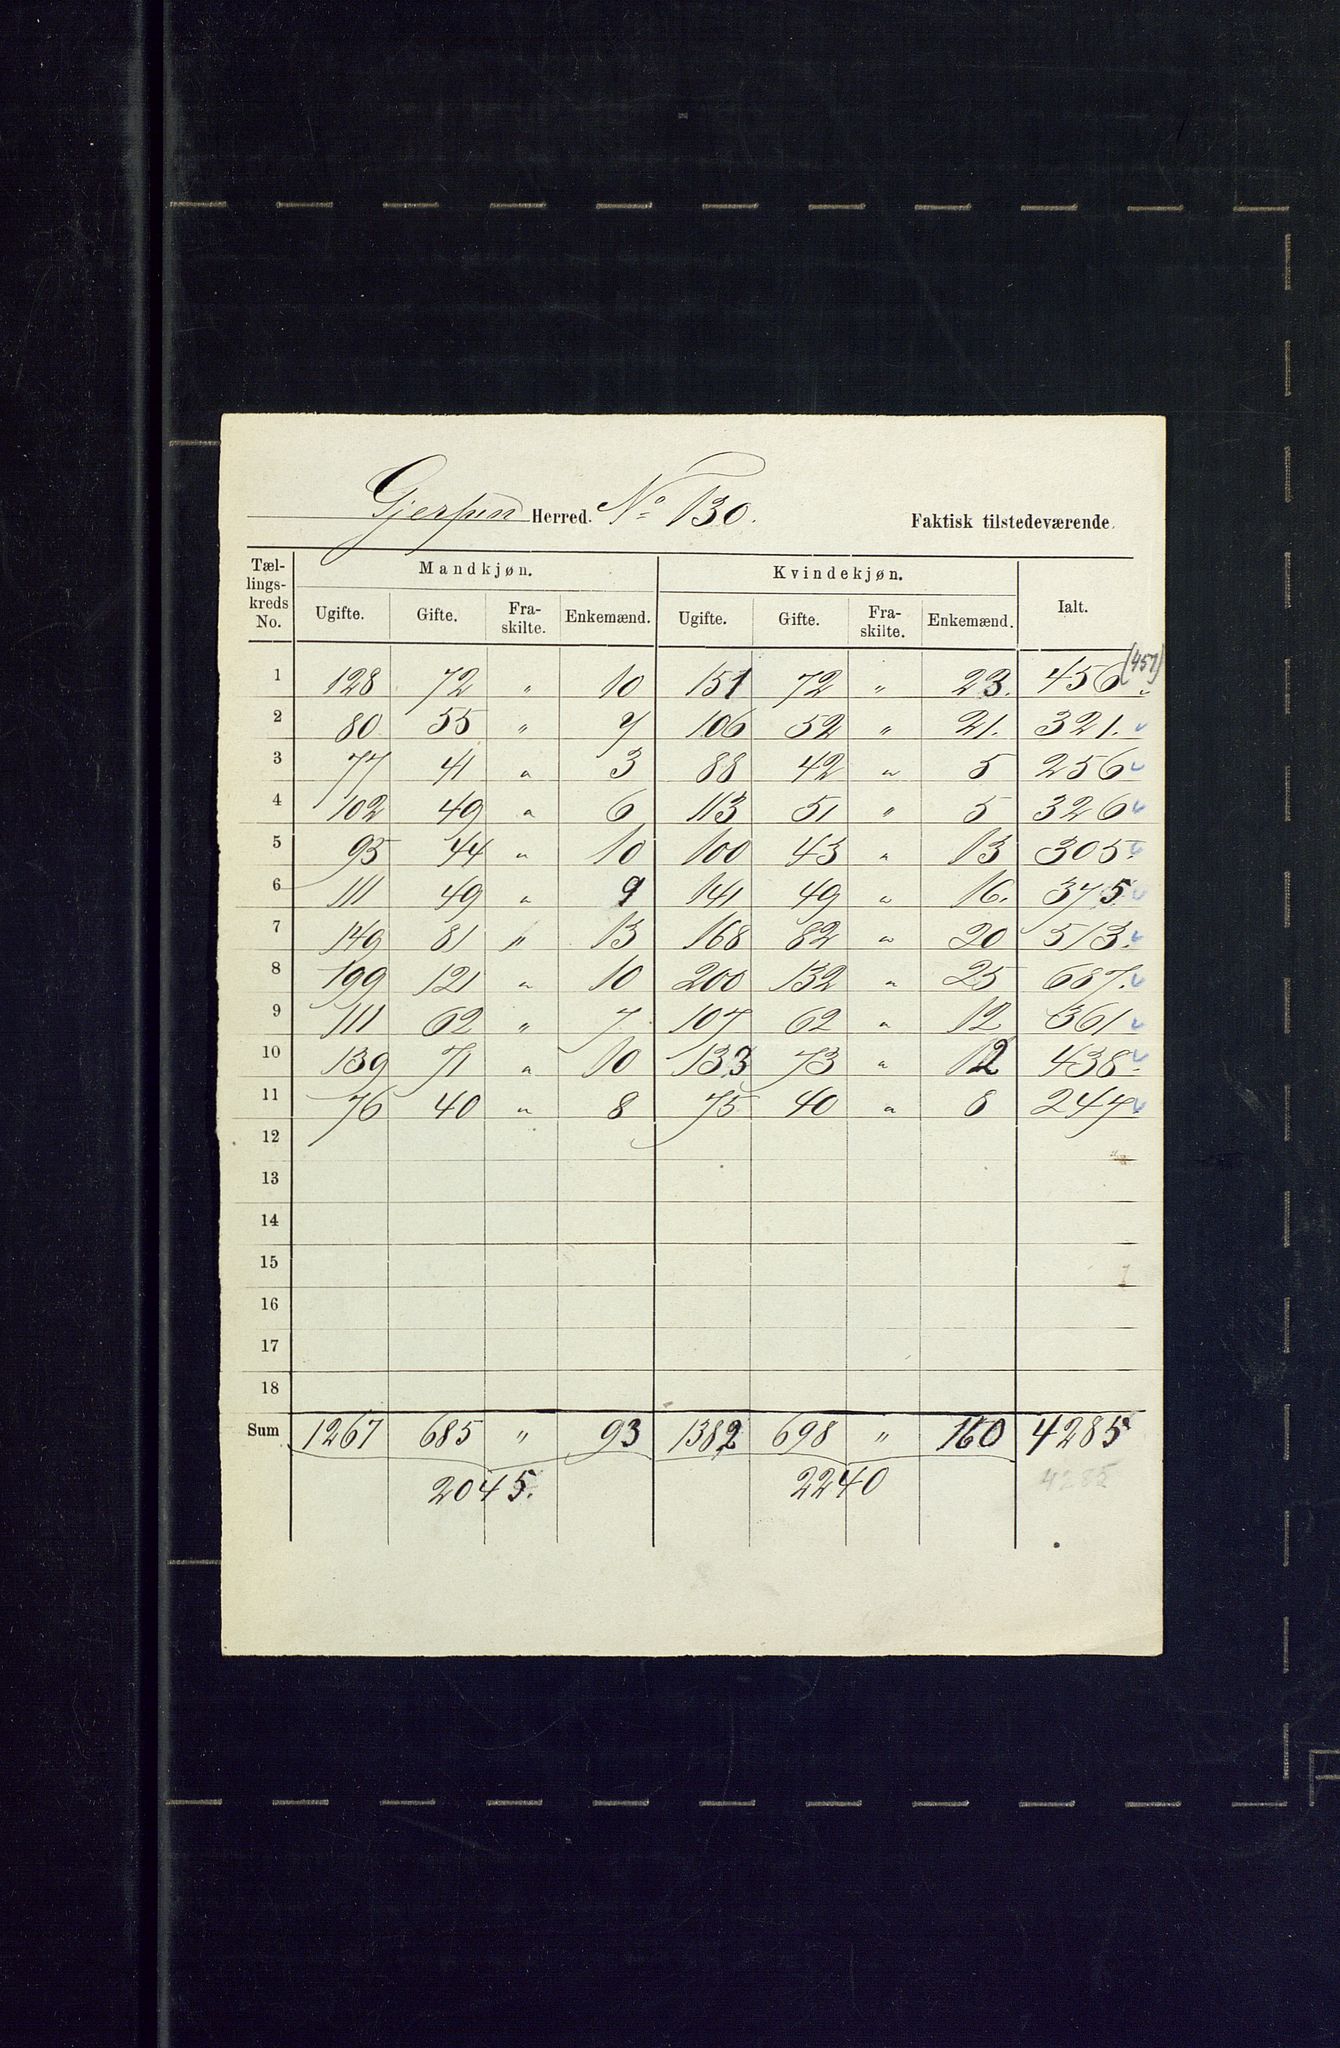 Gjerpen Herred. No 130. Faktisk tilstedeværende.
Tællingskreds No. Mandkjøn. Kvindekjøn. Ialt.
Ugifte. Gifte. Fraskilte. Enkemænd. Ugifte. Gifte. Fraskilte. Enkemænd.
1 128 72 " 10 151 72 " 23. 456. (457)
2 80 55 " 7 106 52 " 21. 321.
3 77 41 " 3 88 42 " 5 256
4 102 49 " 6 113 51 " 5 326
5 95 44 " 10 100 43 " 13 305.
6 111 49 " 9 141 49 " 16. 375
7 149 81 " 13 168 82 " 20 513.
8 199 121 " 10 200 132 " 25 687.
9 111 62 " 7 107 62 " 12 361
10 139 71 " 10 133 73 " 12 438.
11 76 40 " 8 75 40 " 8 247
12
13
14
15
16
17
18
Sum 1267 685 " 93 1382 698 " 160 4285
2045. 2240 4285